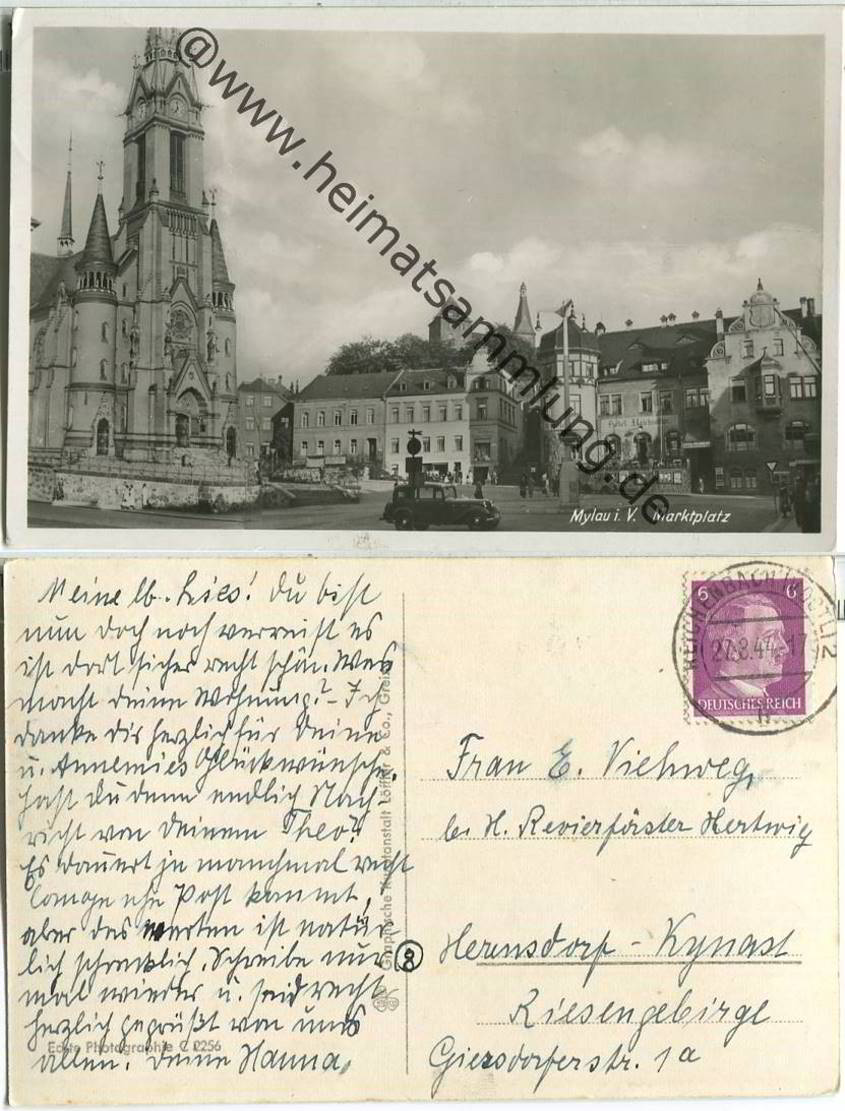 @www.heimatsammlung.de
Mylau i. V. Marktplatz
Meine lb. Lies! Du bist
nun doch noch verreist es
ist dort sicher recht schön. Was
macht deine Wohnung? - Ich
danke dir herzlich für Deine
u. Annemies Glückwünsche.
hast Du denn endlich Nach-
richt von Deinem Theo?
Es dauert ja manchmal recht
lange ehe Post kommt,
aber das warten ist natür-
lich schrecklich. Schreibe nur
mal wieder u. seid recht
herzlich gegrüßt von uns
allen. Deine Hanna,
Echte Photographie C 2256
Graphische Kunstanstalt Löffler & Co., Greiz
8
REICHENBACH (VOGTL) 2
27.8.44-17
h
5 6
DEUTSCHES REICH
Frau E. Viehweg,
bei H. Revierförster Hertwig
Hermsdorf - Kynast
Riesengebirge
Giersdorferstr. 1a